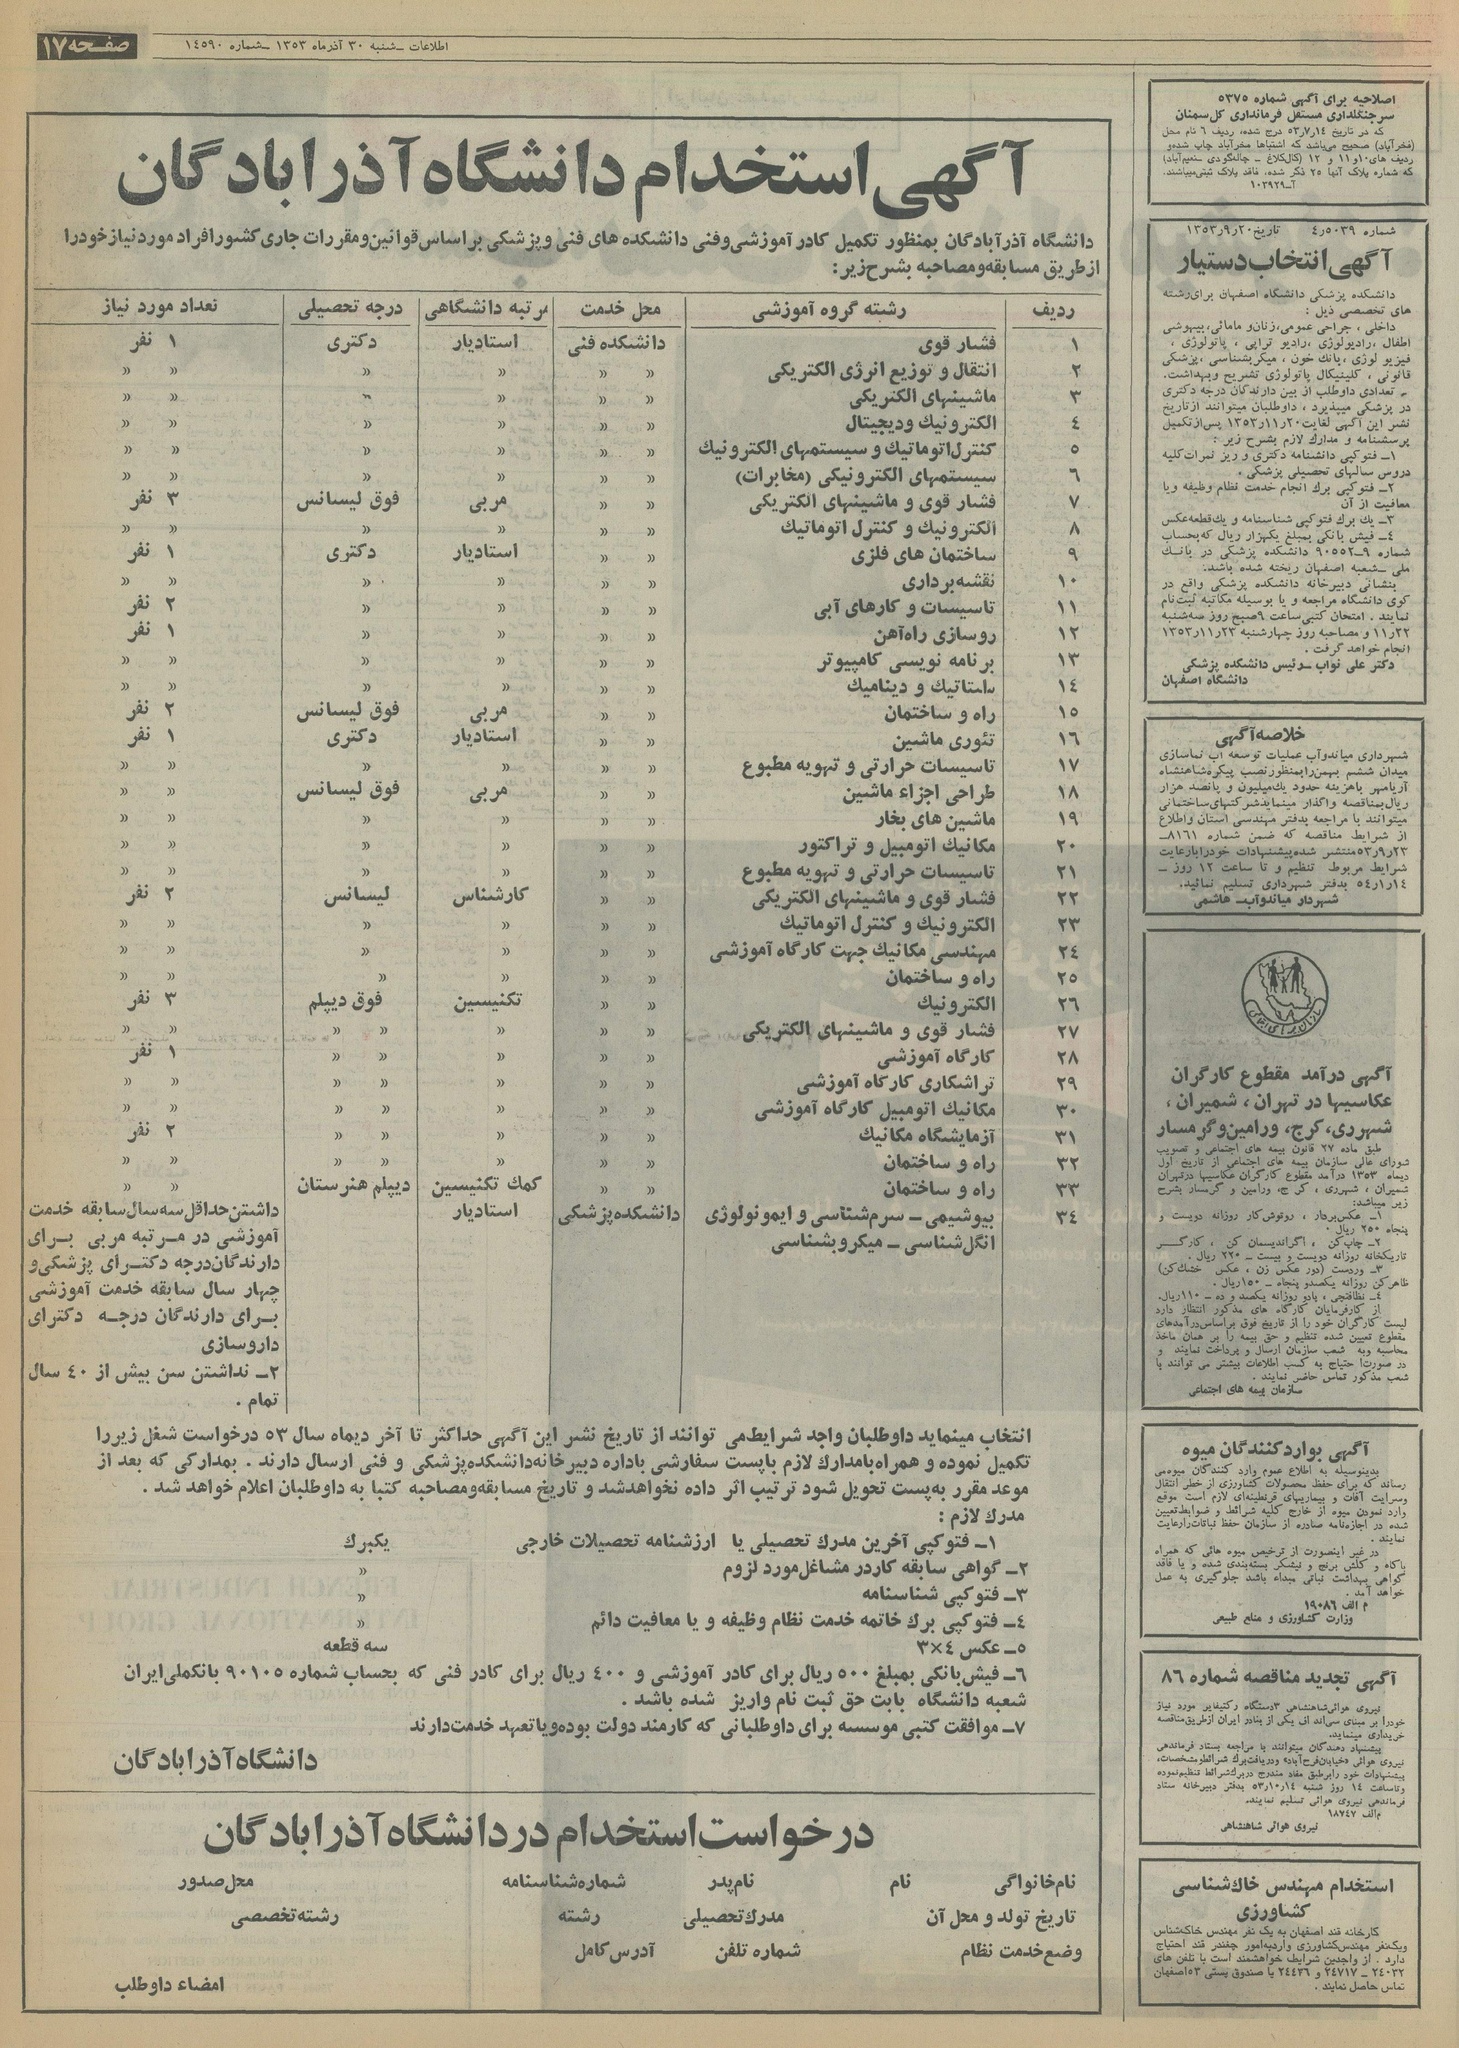 اطلاعات ــ شنبه ۳۰ آذرماه ۱۳۵۳ ــ شماره ۱٤۵۹۰
صفحه ۱۷
اصلاحیه برای آگهی شماره ۵۳۷۵
سرجنگلداری مستقل فرمانداری کل سمنان
که در تاریخ ۱٤ر۷ر۵۳ درج شده، ردیف ٦ نام محل
(فخرآباد) صحیح میباشد که اشتباها مخرآباد چاپ شده و
ردیف های ۱۰ و ۱۱ و ۱۲ (کال کلاغ ــ چاله گودی ــ نعیم آباد)
که شماره پلاک آنها ۲۵ ذکر شده، فاقد پلاک ثبتی میباشند.
آــ ۱۰۳۹۲۹
شماره ۵۰۳۹ر٤ تاریخ ۲۰ر۹ر۱۳۵۳
آگهی انتخاب دستیار
دانشکده پزشکی دانشگاه اصفهان برای رشته
های تخصصی ذیل :
داخلی ، جراحی عمومی، زنان و مامائی، بیهوشی
اطفال، رادیولوژی، رادیو تراپی ، پاتولوژی ،
فیزیو لوژی ، بانك خون ، میکربشناسی ، پزشکی
قانونی ، کلینیکال پاتولوژی تشریح و بهداشت.
ــ تعدادی داوطلب از بین دارندگان درجه دکتری
در پزشکی میپذیرد ، داوطلبان میتوانند از تاریخ
نشر این آگهی لغایت ۲۰ر۱۱ر۱۳۵۳ پس از تکمیل
پرسشنامه و مدارك لازم بشرح زیر :
۱ــ فتوکپی دانشنامه دکتری و ریز نمرات کلیه
دروس سالهای تحصیلی پزشکی .
۲ــ فتوکپی برك انجام خدمت نظام وظیفه و یا
معافیت از آن
۳ــ یك برك فتوکپی شناسنامه و یك قطعه عکس
٤ــ فیش بانکی بمبلغ یکهزار ریال که بحساب
شماره ۹ــ۹۰۵۵۲ دانشکده پزشکی در بانك
ملی ــ شعبه اصفهان ریخته شده باشد.
بنشانی دبیرخانه دانشکده پزشکی واقع در
کوی دانشگاه مراجعه و یا بوسیله مکاتبه ثبت نام
نمایند . امتحان کتبی ساعت ۹ صبح روز سه شنبه
۲۲ر۱۱ و مصاحبه روز چهارشنبه ۲۳ر۱۱ر۱۳۵۳
انجام خواهد گرفت .
دکتر علی نواب ــ رئیس دانشکده پزشکی
دانشگاه اصفهان
خلاصه آگهی
شهرداری میاندوآب عملیات توسعه آب نماسازی
میدان ششم بهمن را بمنظور نصب پیکره شاهنشاه
آریامهر با هزینه حدود یك میلیون و پانصد هزار
ریال بمناقصه واگذار مینماید شرکتهای ساختمانی
میتوانند با مراجعه بدفتر مهندسی استان و اطلاع
از شرایط مناقصه که ضمن شماره ۸۱٦۱ــ
۲۳ر۹ر۵۳ منتشر شده پیشنهادات خود را با رعایت
شرایط مربوط تنظیم و تا ساعت ۱۲ روز ــ
۱٤ر۱ر۵٤ بدفتر شهرداری تسلیم نمائید.
شهردار میاندوآب ــ هاشمی
آگهی درآمد مقطوع کارگران
عکاسیها در تهران ، شمیران ،
شهرری، کرج، ورامین و گرمسار
طبق ماده ۲۷ قانون بیمه های اجتماعی و تصویب
شورای عالی سازمان بیمه های اجتماعی از تاریخ اول
دیماه ۱۳۵۳ درآمد مقطوع کارگران عکاسیها در تهران
شمیران ، شهرری ، کرج، ورامین و گرمسار بشرح
زیر میباشد:
۱ــ عکس بردار ، روتوش کار روزانه دویست و
پنجاه ۲۵۰ ریال .
۲ــ چاپ کن ، اگراندیسمان کن ، کارگر
تاریکخانه روزانه دویست و بیست ــ ۲۲۰ ریال .
۳ــ وردست (دور عکس زن ، عکس خشك کن)
ظاهرکن روزانه یکصدو پنجاه ــ ۱۵۰ ریال .
٤ــ نظافتچی ، پادو روزانه یکصد و ده ــ ۱۱۰ ریال.
از کارفرمایان کارگاه های مذکور انتظار دارد
لیست کارگران خود را از تاریخ فوق براساس درآمدهای
مقطوع تعیین شده تنظیم و حق بیمه را بر همان ماخذ
محاسبه وبه شعب سازمان ارسال و پرداخت نمایند و
در صورت احتیاج به کسب اطلاعات بیشتر می توانند با
شعب مذکور تماس حاضر نمایند .
سازمان بیمه های اجتماعی
آگهی بواردکنندگان میوه
بدینوسیله به اطلاع عموم وارد کنندگان میوه می
رساند که برای حفظ محصولات کشاورزی از خطر انتقال
وسرایت آفات و بیماریهای قرنطینه ای لازم است موقع
وارد نمودن میوه از خارج کلیه شرائط و ضوابط تعیین
شده در اجازه نامه صادره از سازمان حفظ نباتات رارعایت
نمایند .
در غیر اینصورت از ترخیص میوه هائی که همراه
باکاه و کلش برنج و نیشکر بسته بندی شده و یا فاقد
گواهی بهداشت نباتی مبداء باشد جلوگیری به عمل
خواهد آمد .
م الف ۱۹۰۸٦
وزارت کشاورزی و منابع طبیعی
آگهی تجدید مناقصه شماره ۸٦
نیروی هوائی شاهنشاهی ۳ دستگاه رکتیفایر مورد نیاز
خودرا بر مبنای سی اند اف یکی از بنادر ایران ازطریق مناقصه
خریداری مینماید.
پیشنهاد دهندگان میتوانند با مراجعه بستاد فرماندهی
نیروی هوائی «خیابان فرح آباد» ودریافت برك شرائط و مشخصات،
پیشنهادات خود را برطبق مفاد مندرج در برك شرائط تنظیم نموده
و تا ساعت ۱٤ روز شنبه ۱٤ر۱۰ر۵۳ بدفتر دبیرخانه ستاد
فرماندهی نیروی هوائی تسلیم نمایند.
م الف ۱۸۷٤۷
نیروی هوائی شاهنشاهی
استخدام مهندس خاك شناسی
کشاورزی
کارخانه قند اصفهان به یك نفر مهندس خاك شناس
ویك نفر مهندس کشاورزی وارد به امور چغندر قند احتیاج
دارد . از واجدین شرایط خواهشمند است با تلفن های
۲٤۰۳۲ ــ ۲٤۷۱۷ و ۲٤٤۳٦ یا صندوق پستی ۵۳ اصفهان
تماس حاصل نمایند .
آگهی استخدام دانشگاه آذرابادگان
دانشگاه آذرآبادگان بمنظور تکمیل کادر آموزشی وفنی دانشکده های فنی و پزشکی براساس قوانین و مقررات جاری کشور افراد مورد نیاز خود را
از طریق مسابقه و مصاحبه بشرح زیر:
ردیف رشته گروه آموزشی محل خدمت مرتبه دانشگاهی درجه تحصیلی تعداد مورد نیاز
۱ فشار قوی دانشکده فنی استادیار دکتری ۱ نفر
۲ انتقال و توزیع انرژی الکتریکی « « « « « «
۳ ماشینهای الکتریکی « « « « « «
٤ الکترونیك ودیجیتال « « « « « «
۵ کنترل اتوماتیك و سیستمهای الکترونیك « « « « « «
٦ سیستمهای الکترونیکی (مخابرات) « « « « « «
۷ فشار قوی و ماشینهای الکتریکی « « مربی فوق لیسانس ۳ نفر
۸ الکترونیك و کنترل اتوماتیك « « « « « «
۹ ساختمان های فلزی « « استادیار دکتری ۱ نفر
۱۰ نقشه برداری « « « « « «
۱۱ تاسیسات و کارهای آبی « « « « ۲ نفر
۱۲ روسازی راه آهن « « « « ۱ نفر
۱۳ برنامه نویسی کامپیوتر « « « « « «
۱٤ استاتیك و دینامیك « « « « « «
۱۵ راه و ساختمان « « مربی فوق لیسانس ۲ نفر
۱٦ تئوری ماشین « « استادیار دکتری ۱ نفر
۱۷ تاسیسات حرارتی و تهویه مطبوع « « « « « «
۱۸ طراحی اجزاء ماشین « « مربی فوق لیسانس « «
۱۹ ماشین های بخار « « « « « «
۲۰ مکانیك اتومبیل و تراکتور « « « « « «
۲۱ تاسیسات حرارتی و تهویه مطبوع « « « « « «
۲۲ فشار قوی و ماشینهای الکتریکی « « کارشناس لیسانس ۲ نفر
۲۳ الکترونیك و کنترل اتوماتیك « « « « « «
۲٤ مهندسی مکانیك جهت کارگاه آموزشی « « « « « «
۲۵ راه و ساختمان « « « « « «
۲٦ الکترونیك « « تکنیسین فوق دیپلم ۳ نفر
۲۷ فشار قوی و ماشینهای الکتریکی « « « « « « «
۲۸ کارگاه آموزشی « « « « « ۱ نفر
۲۹ تراشکاری کارگاه آموزشی « « « « « « «
۳۰ مکانیك اتومبیل کارگاه آموزشی « « « « « « «
۳۱ آزمایشگاه مکانیك « « « « « ۲ نفر
۳۲ راه و ساختمان « « « « « « «
۳۳ راه و ساختمان « « کمك تکنیسین دیپلم هنرستان « «
۳٤ بیوشیمی ــ سرم شناسی و ایمونولوژی دانشکده پزشکی استادیار داشتن حداقل سه سال سابقه خدمت
انگل شناسی ــ میکروبشناسی آموزشی در مرتبه مربی برای
دارندگان درجه دکترای پزشکی و
چهار سال سابقه خدمت آموزشی
برای دارندگان درجه دکترای
داروسازی
۲ــ نداشتن سن بیش از ٤۰ سال
تمام .
انتخاب مینماید داوطلبان واجد شرایط می توانند از تاریخ نشر این آگهی حداکثر تا آخر دیماه سال ۵۳ درخواست شغل زیر را
تکمیل نموده و همراه بامدارك لازم باپست سفارشی باداره دبیرخانه دانشکده پزشکی و فنی ارسال دارند . بمدارکی که بعد از
موعد مقرر به پست تحویل شود ترتیب اثر داده نخواهد شد و تاریخ مسابقه و مصاحبه کتبا به داوطلبان اعلام خواهد شد .
مدرك لازم :
۱ــ فتوکپی آخرین مدرك تحصیلی یا ارزشنامه تحصیلات خارجی یکبرك
۲ــ گواهی سابقه کاردر مشاغل مورد لزوم «
۳ــ فتوکپی شناسنامه «
٤ــ فتوکپی برك خاتمه خدمت نظام وظیفه و یا معافیت دائم «
۵ــ عکس ٤×۳ سه قطعه
٦ــ فیش بانکی بمبلغ ۵۰۰ ریال برای کادر آموزشی و ٤۰۰ ریال برای کادر فنی که بحساب شماره ۹۰۱۰۵ بانك ملی ایران
شعبه دانشگاه بابت حق ثبت نام واریز شده باشد .
۷ــ موافقت کتبی موسسه برای داوطلبانی که کارمند دولت بوده و یا تعهد خدمت دارند
دانشگاه آذرابادگان
درخواست استخدام در دانشگاه آذرابادگان
نام خانواگی نام نام پدر شماره شناسنامه محل صدور
تاریخ تولد و محل آن مدرك تحصیلی رشته رشته تخصصی
وضع خدمت نظام شماره تلفن آدرس کامل
امضاء داوطلب